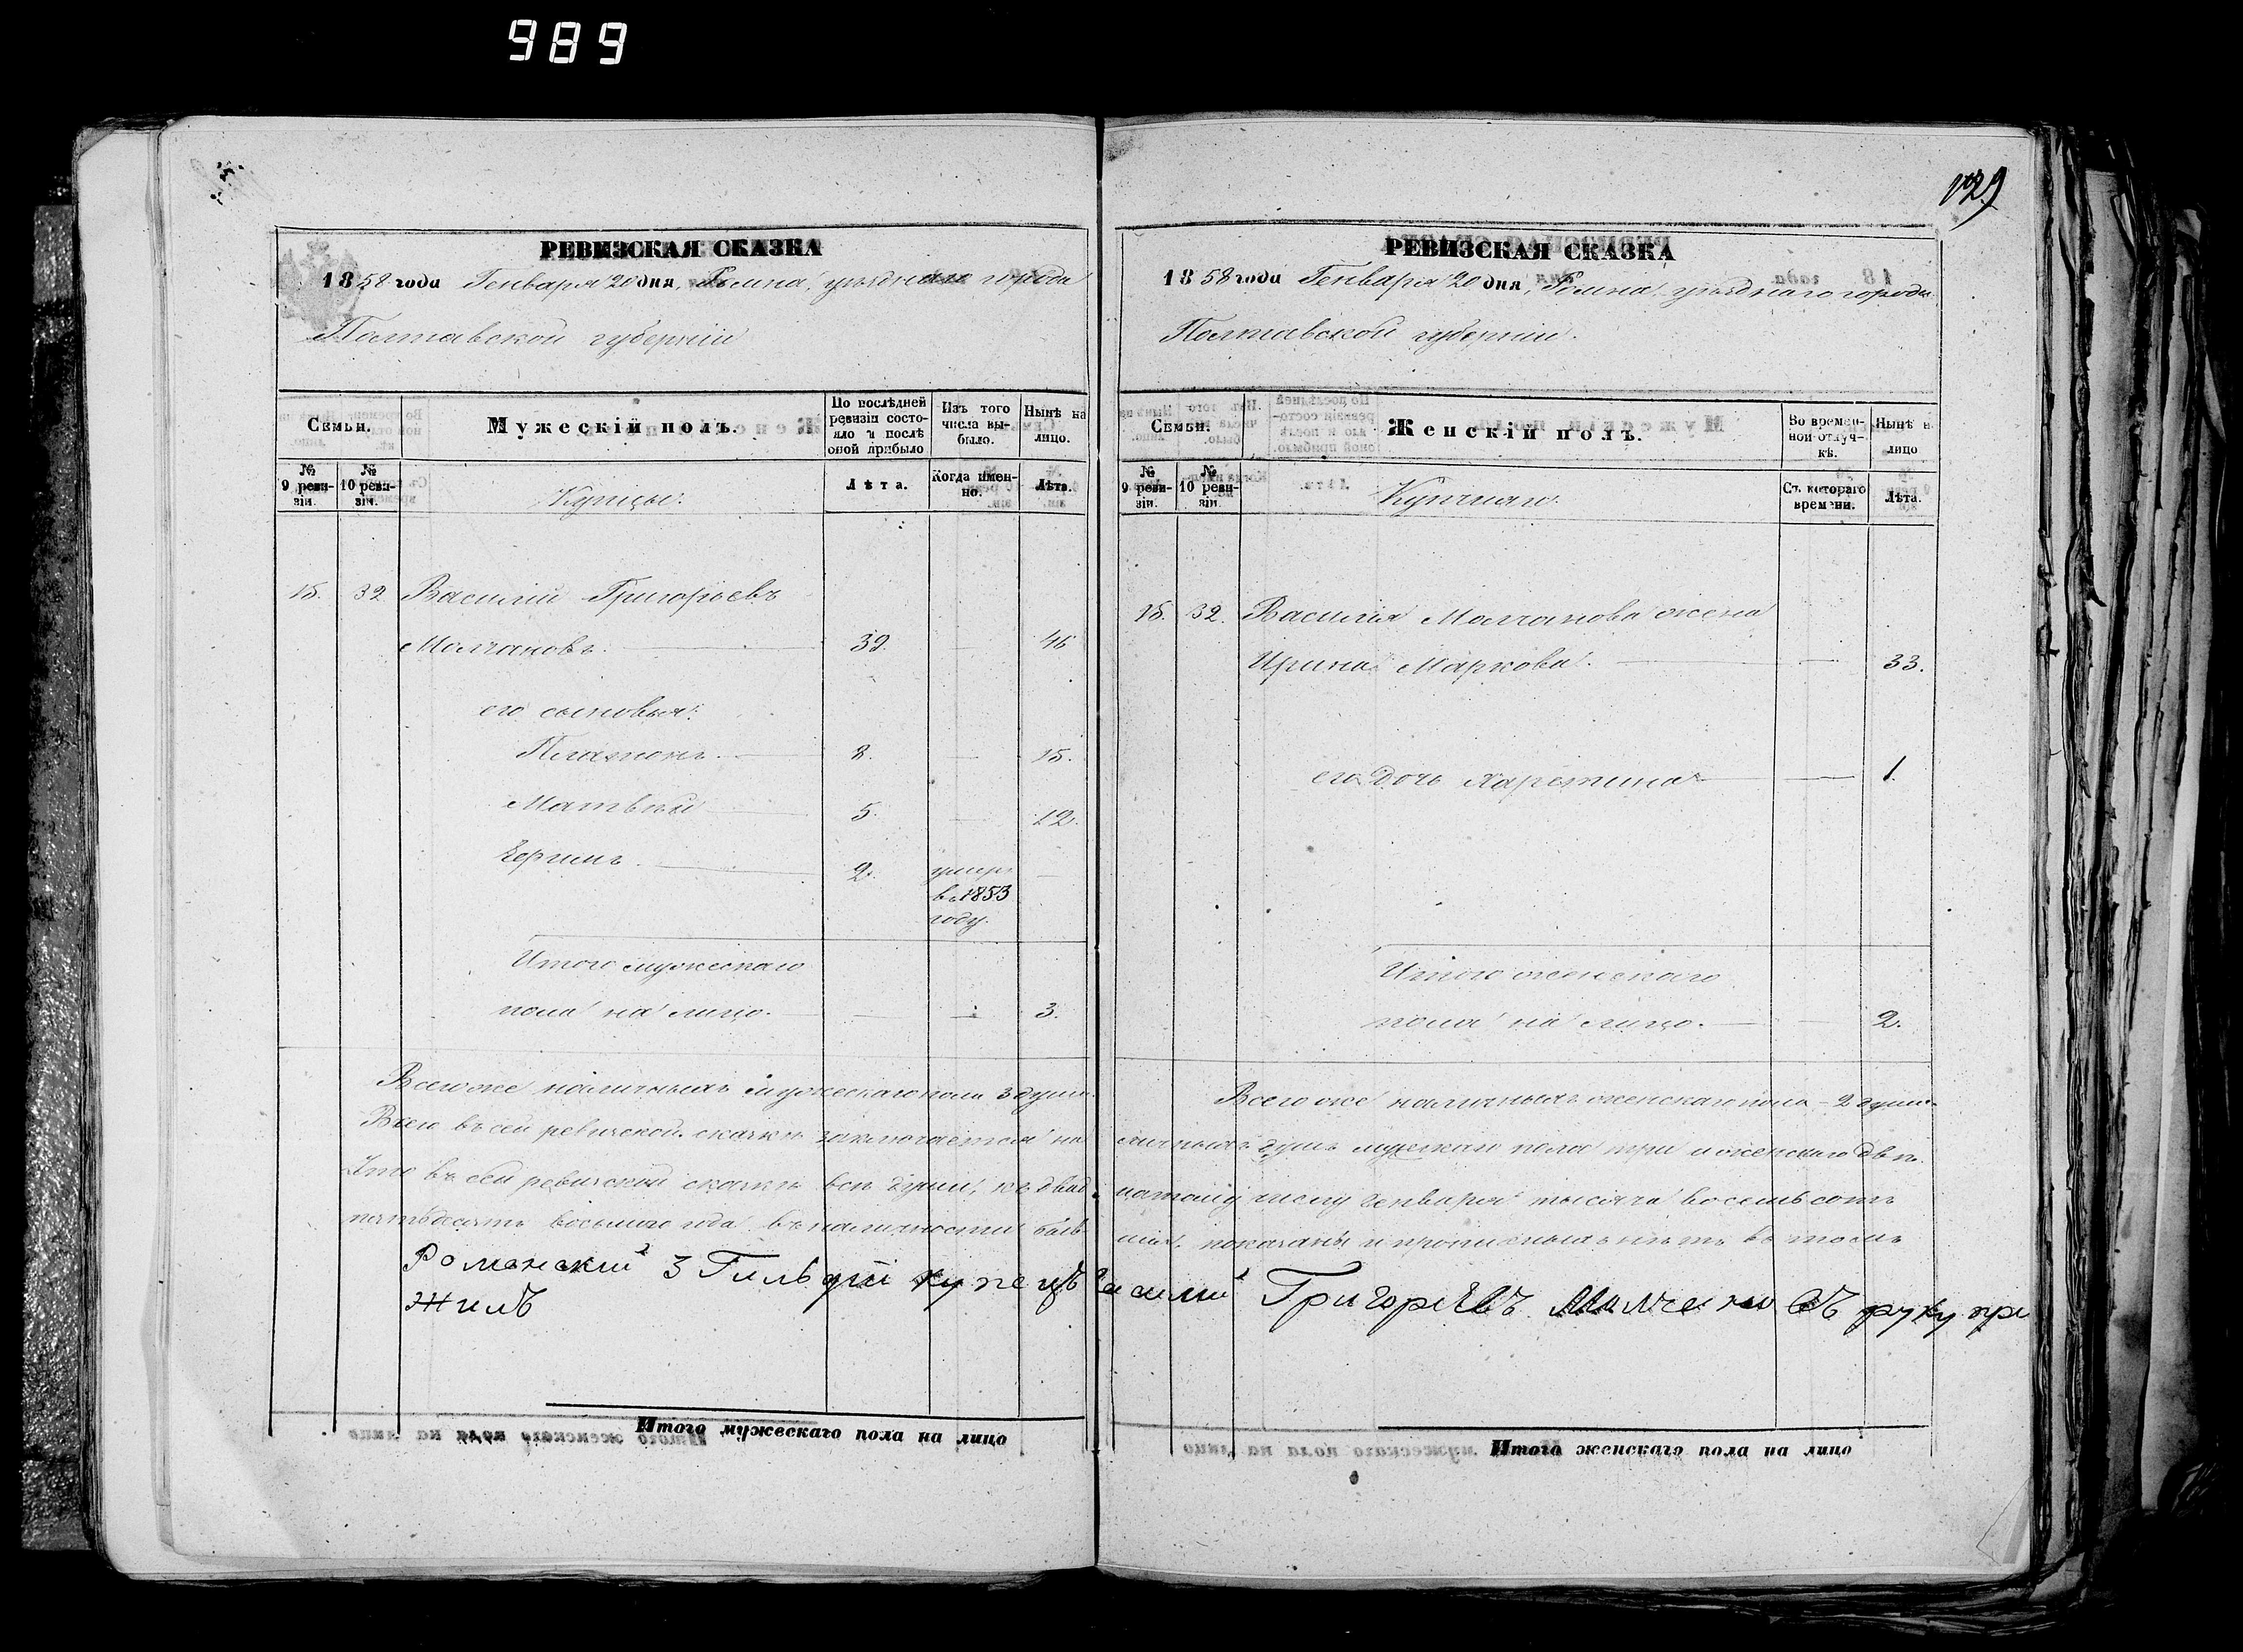 989
129
РЕВИЗСКАЯ СКАЗКА
1858 года Генваря 20 дня, Ромна, уѣзднаго города
Полтавской губерніи
Семьи.
Мужескій полъ.
По послѣдней ревизіи состояло и послѣ оной прибыло
Изъ того числа выбыло.
Нынѣ на лицо.
№ 9 ревизіи.
№ 10 ревизіи.
Купцы.
Лѣта.
Когда именно.
Лѣта.
15. 32 Василій Григорьевъ
Молчановъ. 39. 46
его сыновья:
Платонъ. 8. 15.
Матвѣй 5. 12.
2. умеръ
въ 1853
году.
Итого мужескаго
пола на лицо. 3.
Всего же наличныхъ мужескаго пола 3 души.
Всего въ сей ревизской сказкѣ заключается на
Что въ сей ревизской сказкѣ всѣ души, къ двад
пятьдесятъ восьмаго года въ наличности быв
Роменский 3 Гильдіи купецъ
жилъ
Итого мужескаго пола на лицо
РЕВИЗСКАЯ СКАЗКА
1858 года Генваря 20 дня, Ромна, уѣзднаго города
Полтавской губерніи.
Семьи.
Женскій полъ.
Во временной отлучкѣ.
Нынѣ н лицо
№ 9 ревизіи.
№ 10 ревизіи.
Съ котораго времени.
Лѣта.
15. 32. Василія Молчанова жена
Ирина Маркова. 33.
его дочь Харетина 1.
Итого женскаго
пола на лицо. 2.
Всего же наличныхъ женскаго пола - 2 души
личныхъ душъ мужескаго пола три и женскаго двѣ.
цатому числу генваря тысяча восемьсотъ
шія, показаны и прописныхъ нѣтъ въ томъ
Григорѣвъ Молчановъ руку при
Итого женскаго пола на лицо